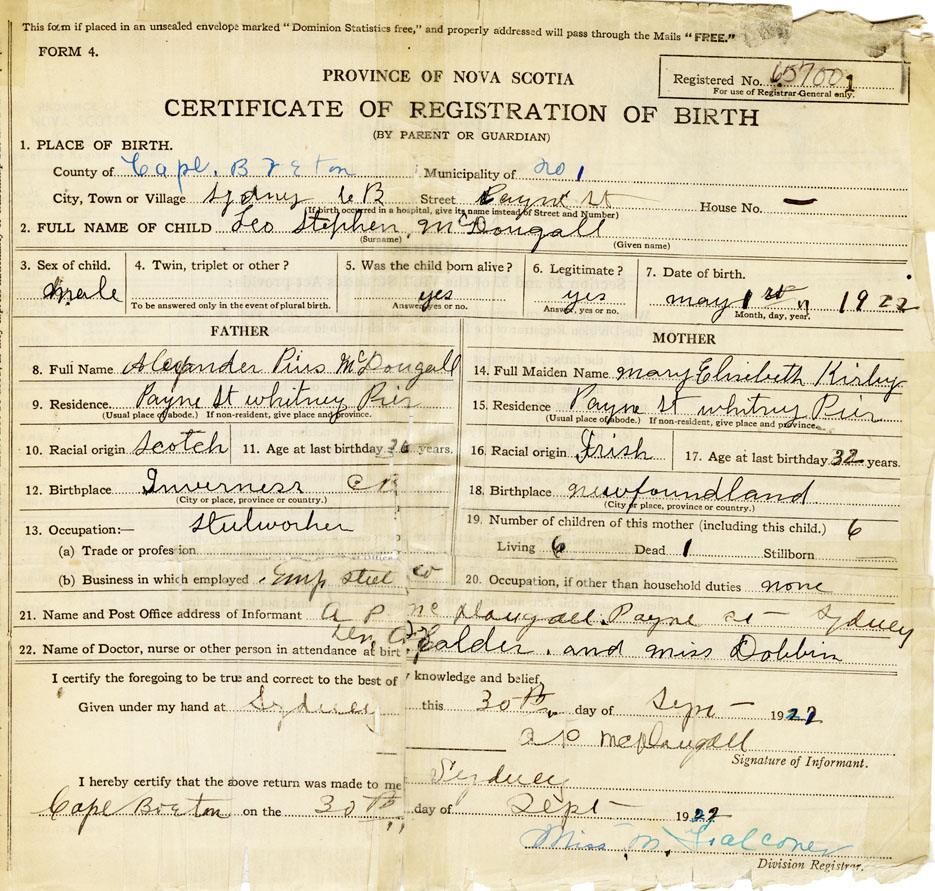 This form if placed in an unsealed envelope marked "Dominion Statistics free," and properly addressed will pass through the Mails "FREE."
FORM 4.
PROVINCE OF NOVA SCOTIA
Registered No. 657001
For use of Registrar-General only.
CERTIFICATE OF REGISTRATION OF BIRTH
(BY PARENT OR GUARDIAN)
1. PLACE OF BIRTH.
County of Cape Breton Municipality of No 1
City, Town or Village Sydney C B Street Payne St House No. —
(If birth occurred in a hospital, give its name instead of Street and Number)
2. FULL NAME OF CHILD Leo Stephen McDougall
(Surname) (Given name)
3. Sex of child. 4. Twin, triplet or other? 5. Was the child born alive? 6. Legitimate? 7. Date of birth.
male yes yes May 1st 1922
To be answered only in the event of plural birth. Answer, yes or no. Answer, yes or no. Month, day, year.
FATHER MOTHER
8. Full Name Alexander Pius McDougall 14. Full Maiden Name Mary Elisebeth Kirby
9. Residence Payne St Whitney Pier 15. Residence Payne St Whitney Pier
(Usual place of abode.) If non-resident, give place and province. (Usual place of abode.) If non-resident, give place and province.
10. Racial origin Scotch 11. Age at last birthday 36 years. 16. Racial origin Irish 17. Age at last birthday 32 years.
12. Birthplace Inverness C B 18. Birthplace Newfoundland
(City or place, province or country.) (City or place, province or country.)
13. Occupation:— Steelworker 19. Number of children of this mother (including this child.) 6
(a) Trade or profesion Living 6 Dead 1 Stillborn
(b) Business in which employed Emp Steel Co 20. Occupation, if other than household duties none
21. Name and Post Office address of Informant A P McDougall Payne St – Sydney
22. Name of Doctor, nurse or other person in attendance at birt Calder and Miss Dobbin
I certify the foregoing to be true and correct to the best of knowledge and belief,
Given under my hand at Sydney this 30th day of Sept – 1922
A P McDougall
Signature of Informant.
I hereby certify that the above return was made to me Sydney
Cape Breton on the 30th day of Sept – 1922
Miss M. Falconer
Division Registrar.